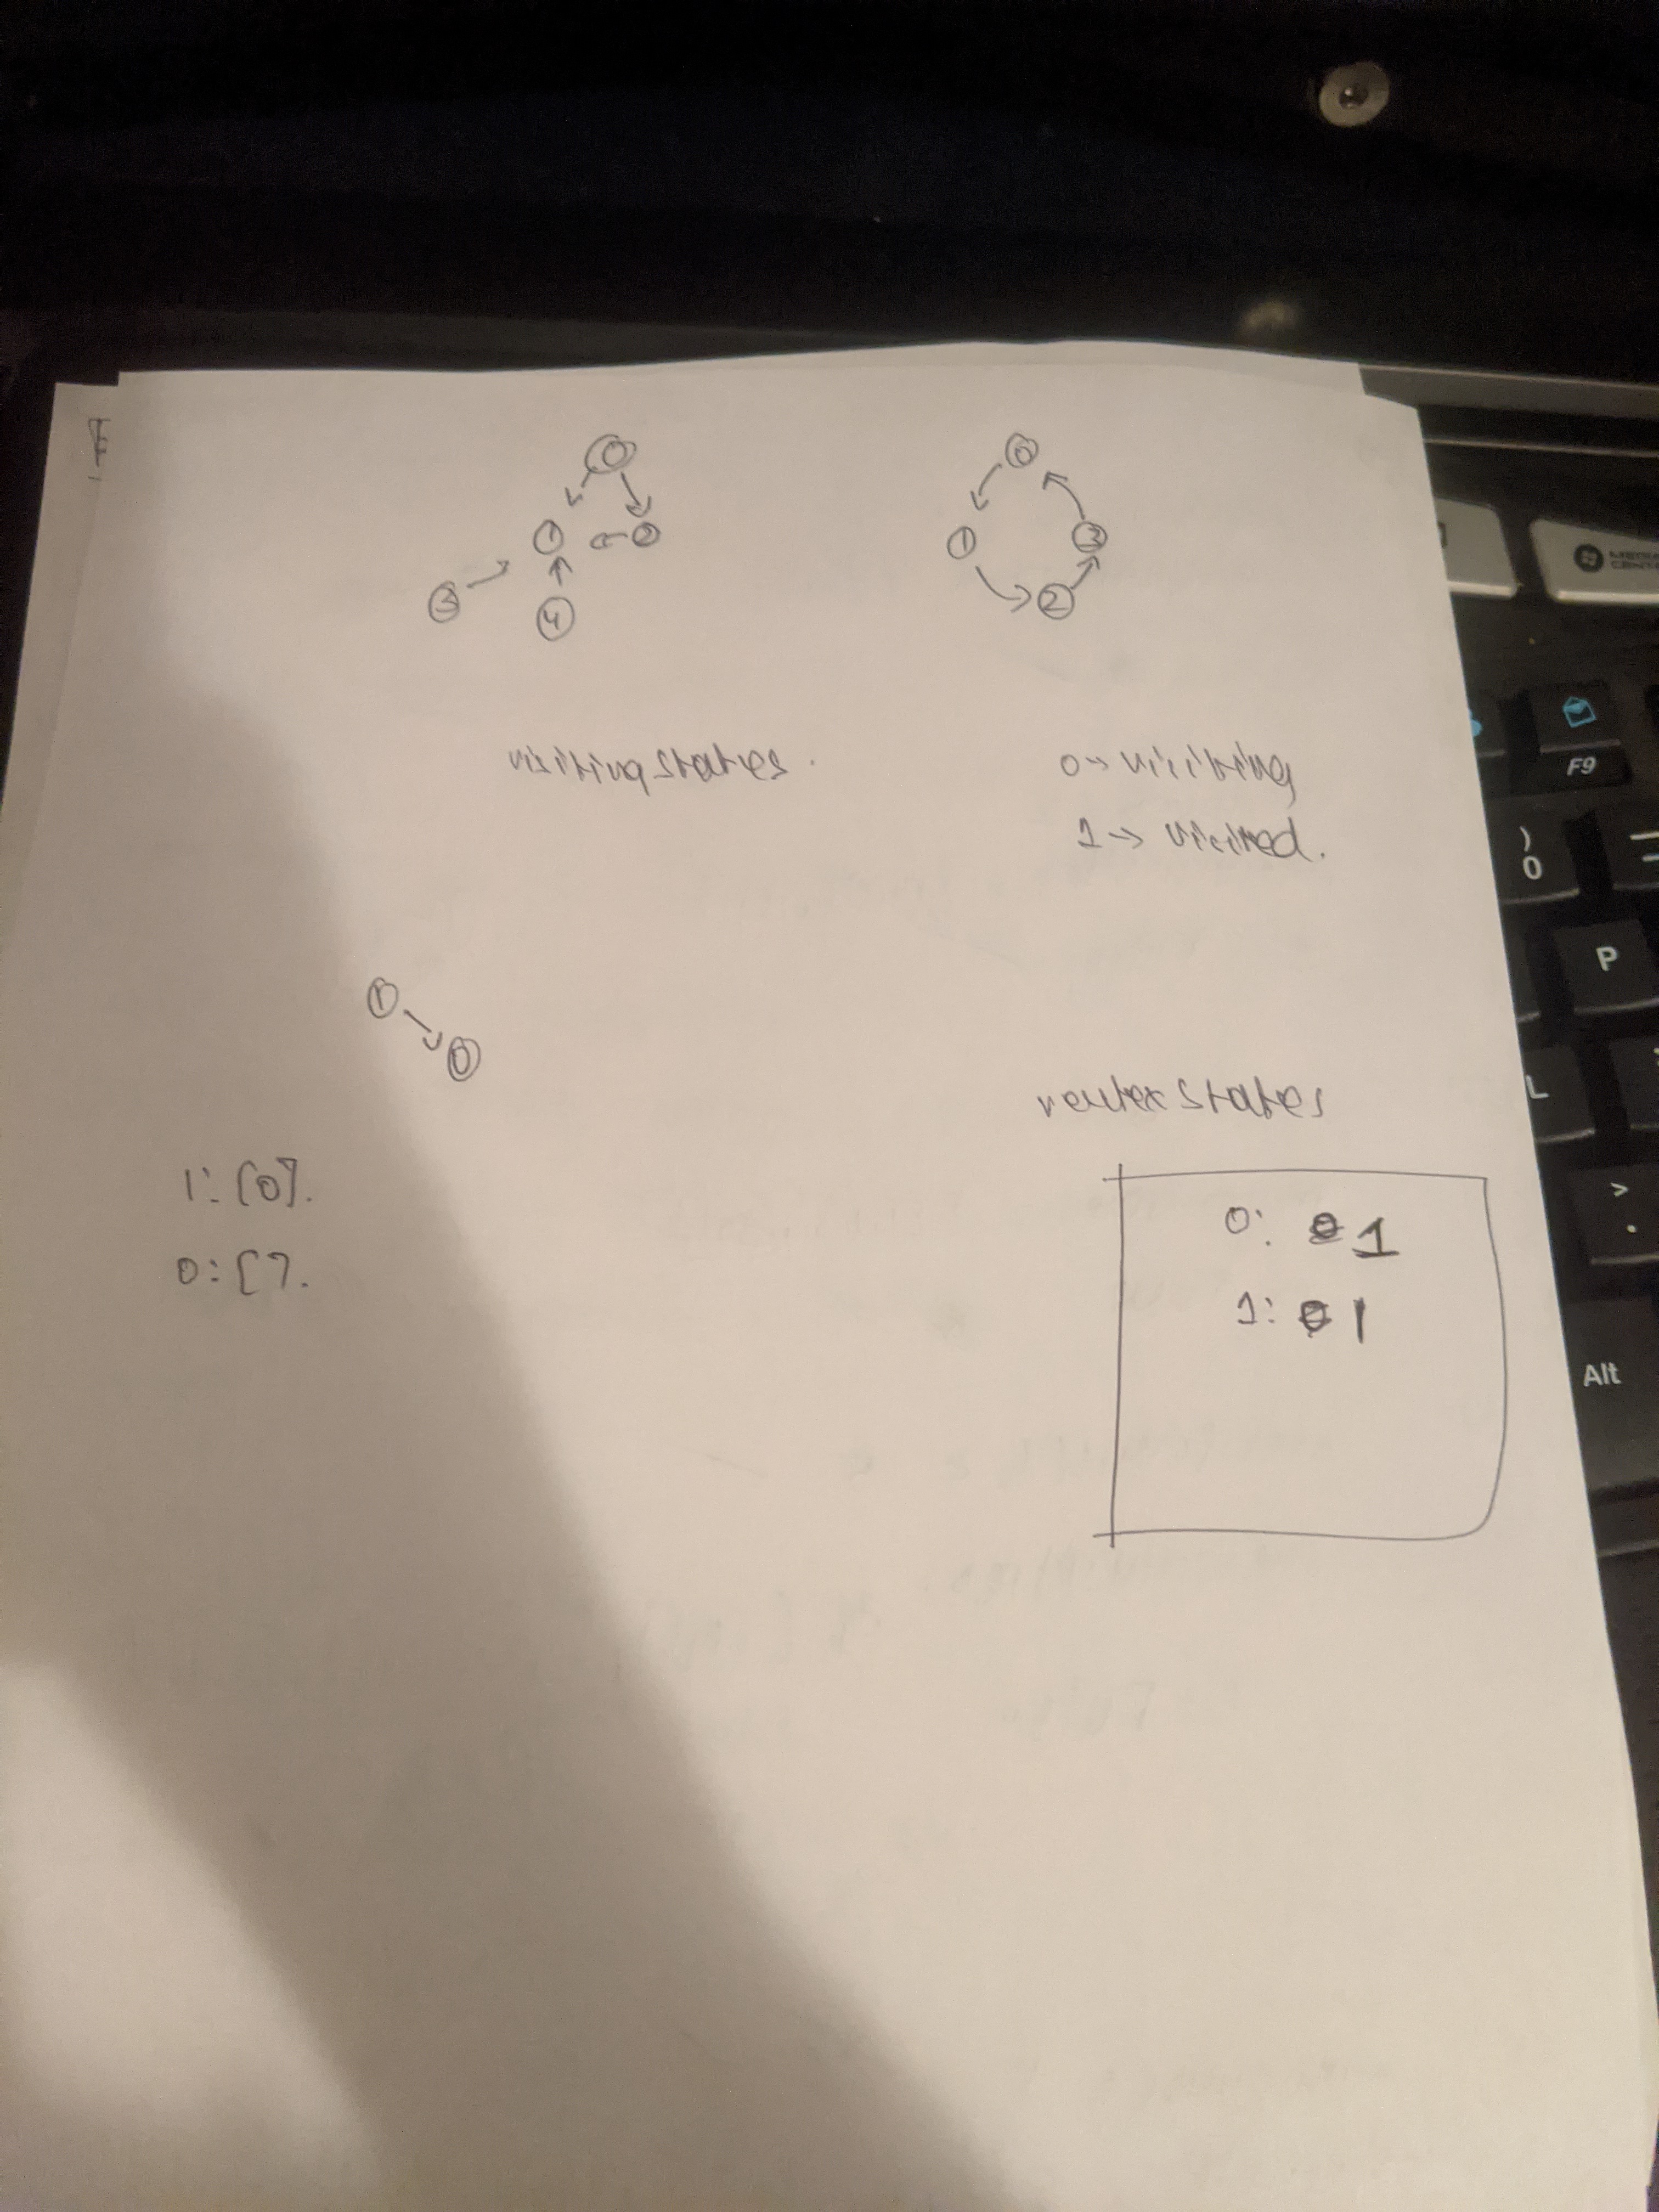 0
1
2
3
4
0
1
3
2
visiting states.
0 → visiting
1 → visited.
1
0
vertex states
1: [0].
0: [].
0: 0 1
1: 0 1
F9
)
0
P
L
>
.
Alt